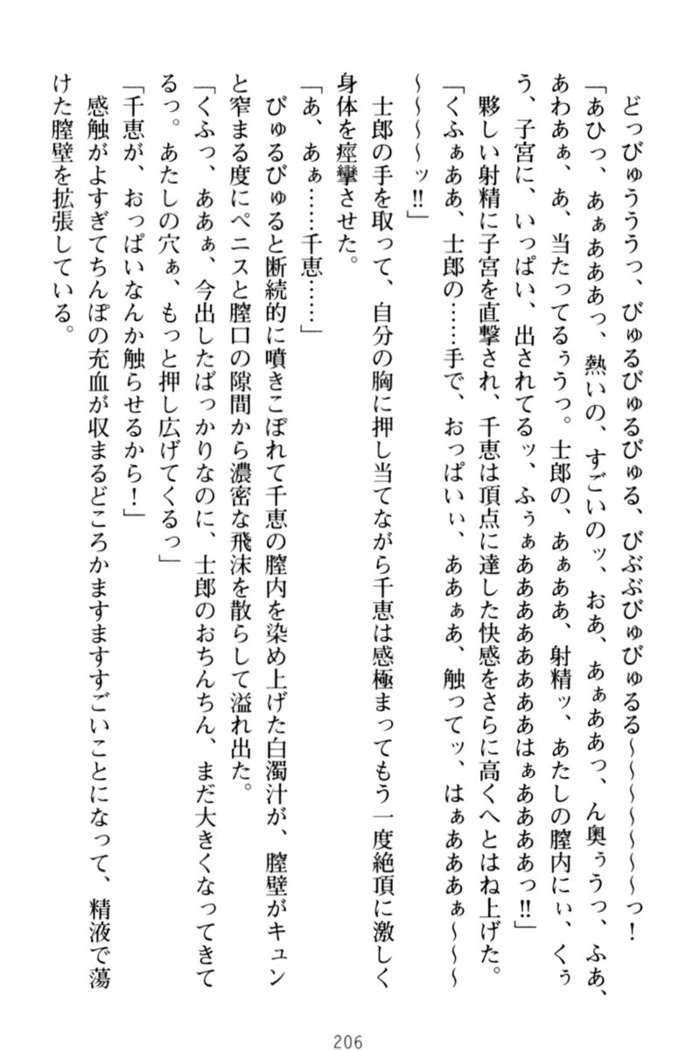 どっぴゅうううっ、びゅるびゅるびゅる、びぶぶびゅびゅるる～～～～～～っ！
「あひっ、あぁあああっ、熱いの、すごいのッ、おあ、あぁああっ、ん奥ぅうっ、ふあ、
あわあぁ、あ、当たってるぅうっ。士郎の、あぁああ、射精ッ、あたしの膣内にぃ、くぅ
う、子宮に、いっぱい、出されてるッ、ふぅぁあああああああああはぁああああっ‼」
夥しい射精に子宮を直撃され、千恵は頂点に達した快感をさらに高くへとはね上げた。
「くふぁああ、士郎の……手で、おっぱいぃ、ああぁあ、触ってッ、はぁあああぁ～～～
～～～～ッ‼」
士郎の手を取って、自分の胸に押し当てながら千恵は感極まってもう一度絶頂に激しく
身体を痙攣させた。
「あ、あぁ……千恵……」
びゅるびゅると断続的に噴きこぼれて千恵の膣内を染め上げた白濁汁が、膣壁がキュン
と窄まる度にペニスと膣口の隙間から濃密な飛沫を散らして溢れ出た。
「くふっ、ああぁ、今出したばっかりなのに、士郎のおちんちん、まだ大きくなってきて
るっ。あたしの穴ぁ、もっと押し広げてくるっ」
「千恵が、おっぱいなんか触らせるから！」
感触がよすぎてちんぽの充血が収まるどころかますますすごいことになって、精液で蕩
けた膣壁を拡張している。
206